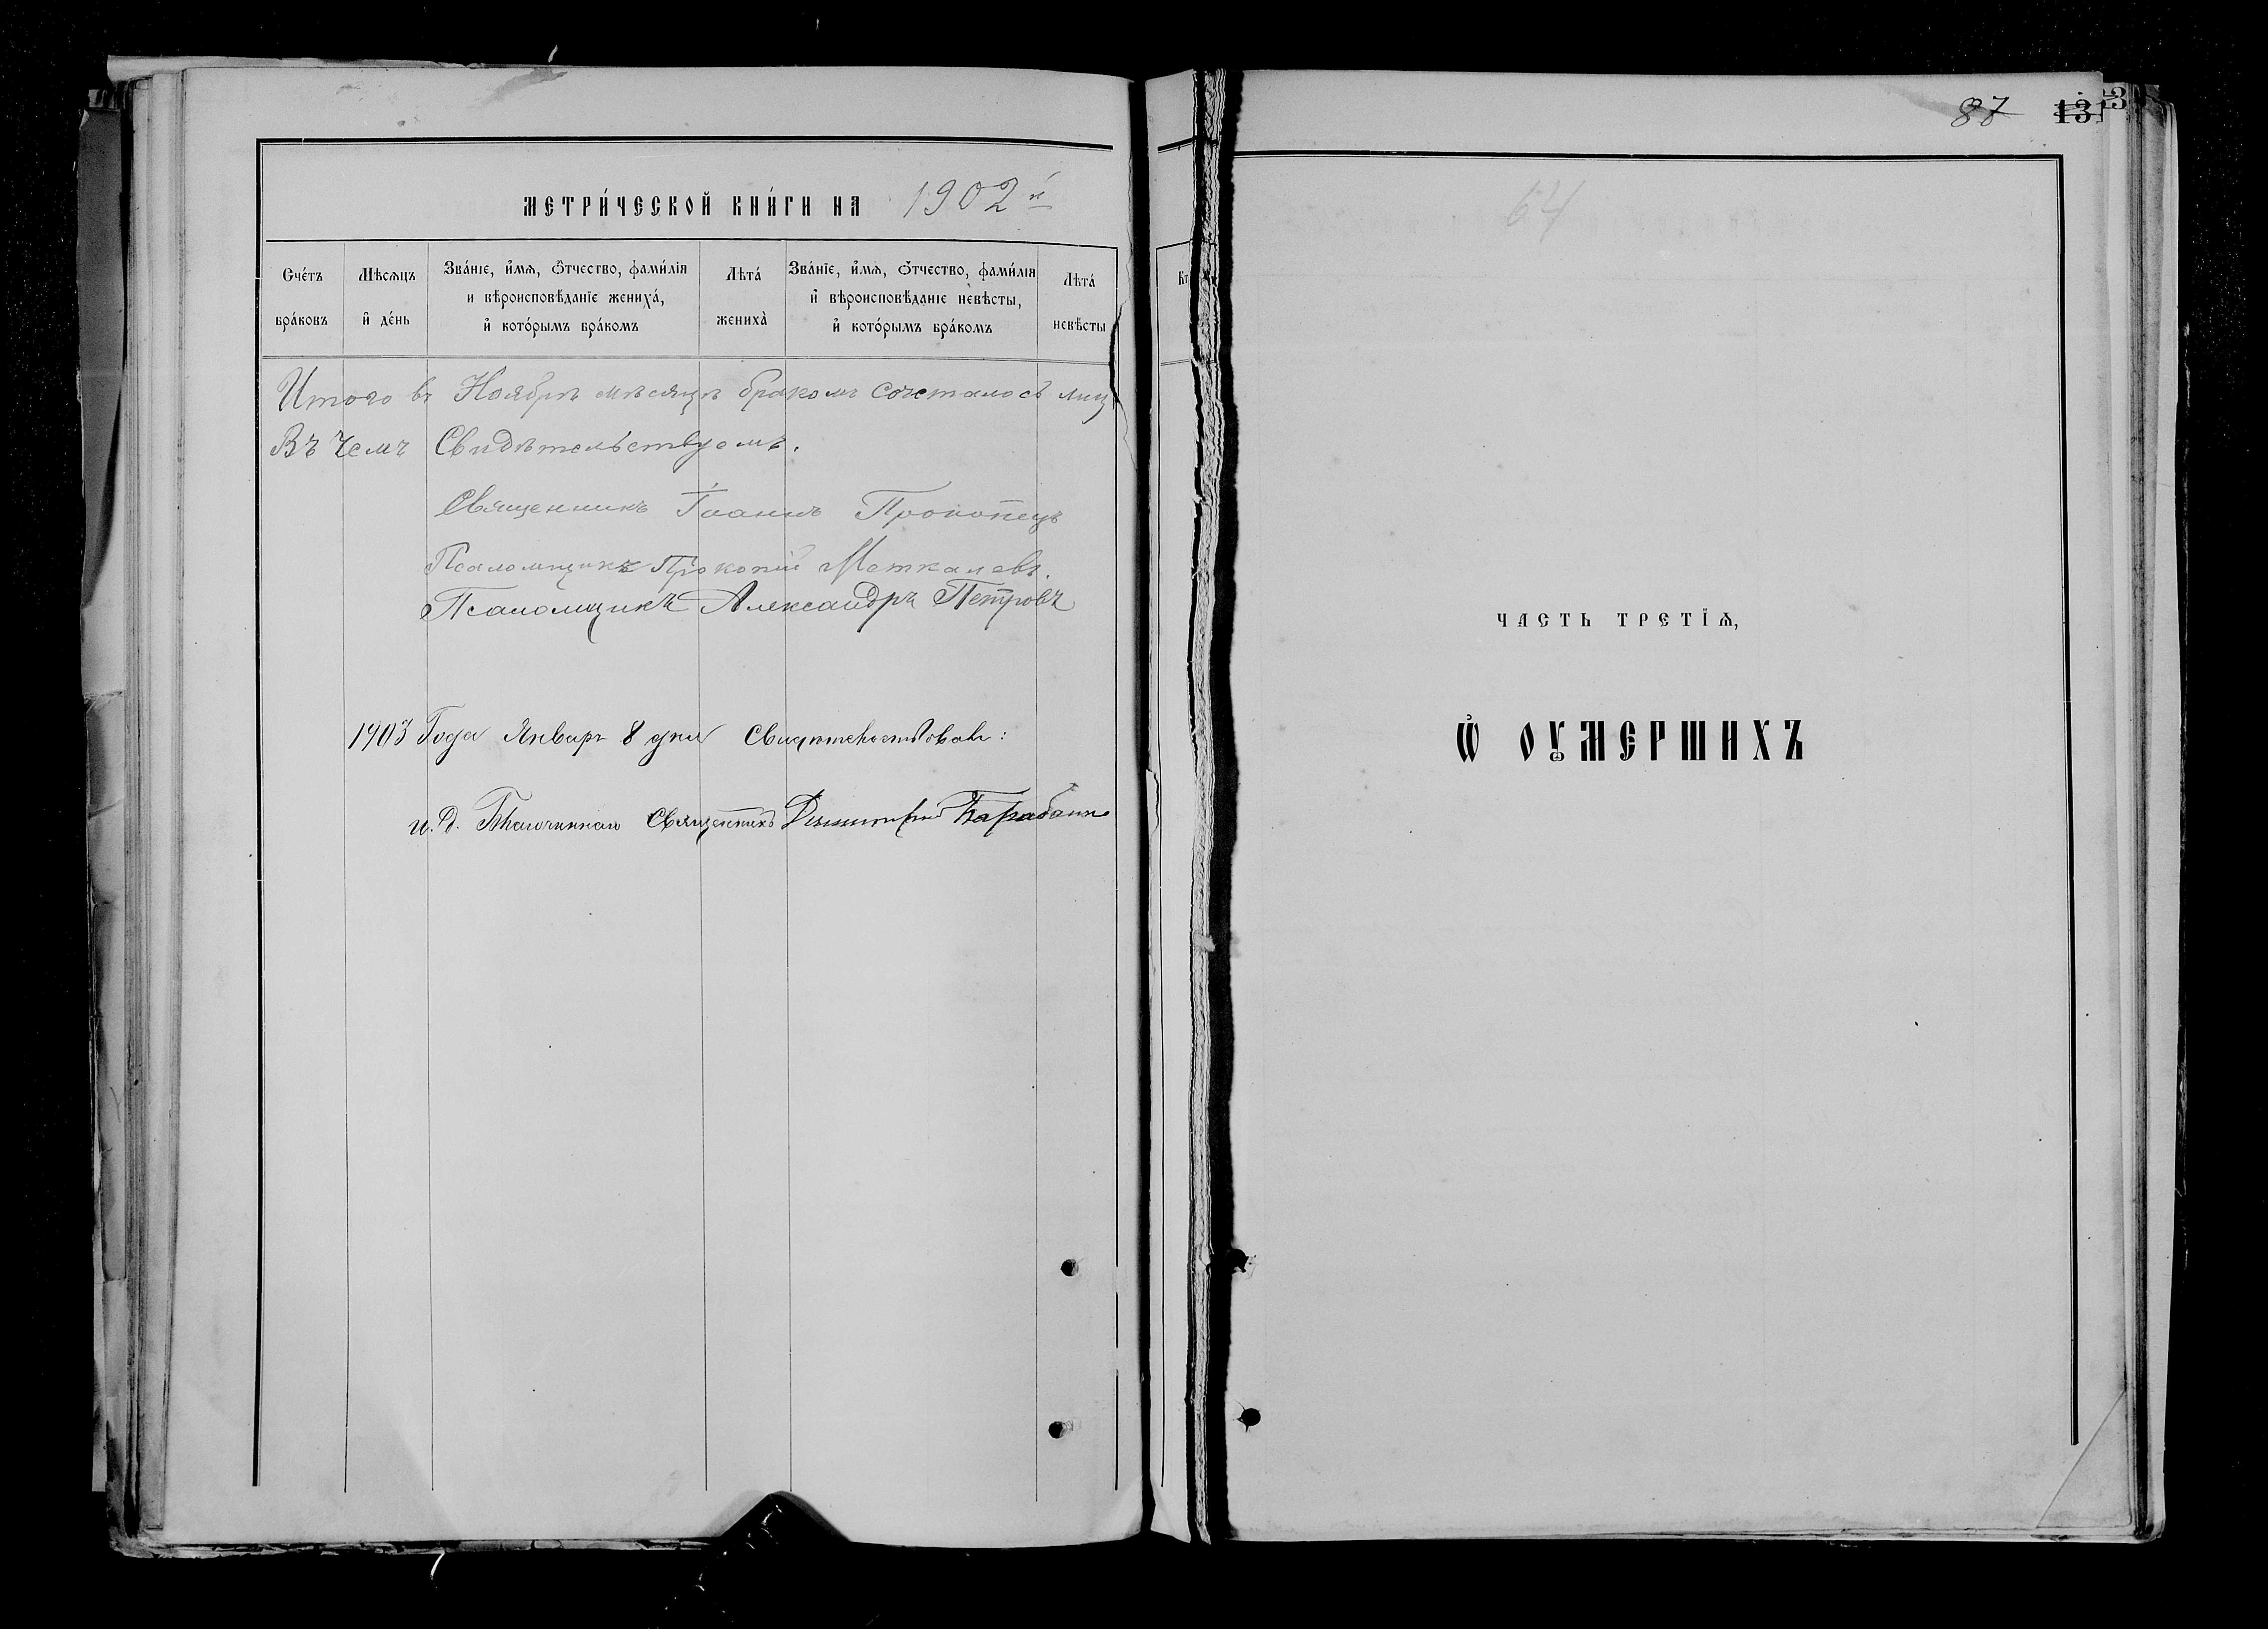 МЕТРИ́ЧЕСКОЙ КНИ́ГИ НА 1902 й
Сче́тъ бра́ковъ
Мѣсѧцъ и҆ де́нь
Зва́нїе, и҆́мѧ, ѻ҆́тчество, фами́лїѧ и вѣроисповѣ́данїе жениха́, и҆ кото́рымъ бра́комъ
Лѣта́ жениха̀
Зва́нїе, и҆́мѧ, ѻ҆́тчество, фами́лїѧ и҆ вѣроисповѣ́данїе невѣ́сты, и҆ кото́рымъ бра́комъ
Лѣта́ невѣ́сты
Итого въ Ноябрѣ мѣсяцѣ бракомъ сочеталось лиц
Въ чемъ Свидѣтельствуемъ.
Священникъ Іоаннъ Прокопецъ
Псаломщикъ Прокопій Меткалевъ.
Псаломщикъ Александръ Петровъ
1903 Года Январ 8 дня Свидѣтельствовалъ:
и. д. Благочиннаго Священникъ Димитрій
87
131
64
ЧАСТЬ ТРЕТЇѦ,
Ѡ҆ ОУ҆МЕРШИХЪ